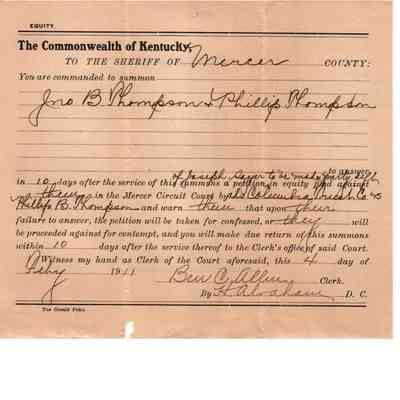 EQUITY
The Commonwealth of Kentucky,
TO THE SHERIFF OF Mercer COUNTY:
You are commanded to summon
Jno B Thompson & Phillip Thompson
to answer
of Joseph Sayer to be made party deft
in 10 days after the service of this summons a petition in equity filed against
them in the Mercer Circuit Court by the Columbia Trust Co vs
Phillip B. Thompson and warn them that upon their
failure to answer, the petition will be taken for confessed, or they will
be proceeded against for contempt, and you will make due return of this summons
within 10 days after the service thereof to the Clerk's office of said Court.
Witness my hand as Clerk of the Court aforesaid, this 4 day of
Feby 1911 Ben C Allen Clerk.
By H Abraham D. C.
The Herald Print.